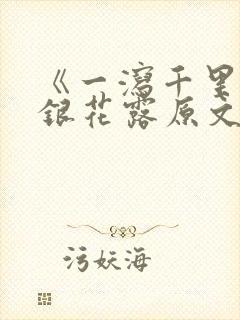 《一泻千里
银花露原文
污妖海